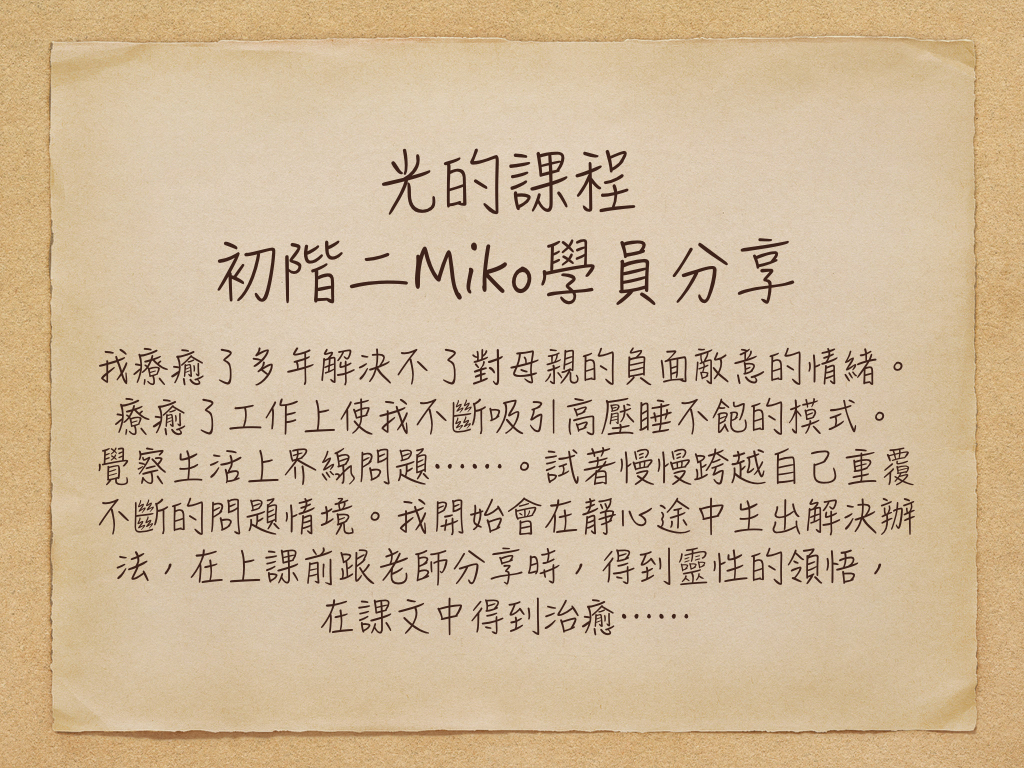 光的課程
初階二Miko學員分享
我療癒了多年解決不了對母親的負面敵意的情緒。
療癒了工作上使我不斷吸引高壓睡不飽的模式。
覺察生活上界線問題⋯⋯。試著慢慢跨越自己重覆
不斷的問題情境。我開始會在靜心途中生出解決辦
法，在上課前跟老師分享時，得到靈性的領悟，
在課文中得到治癒⋯⋯